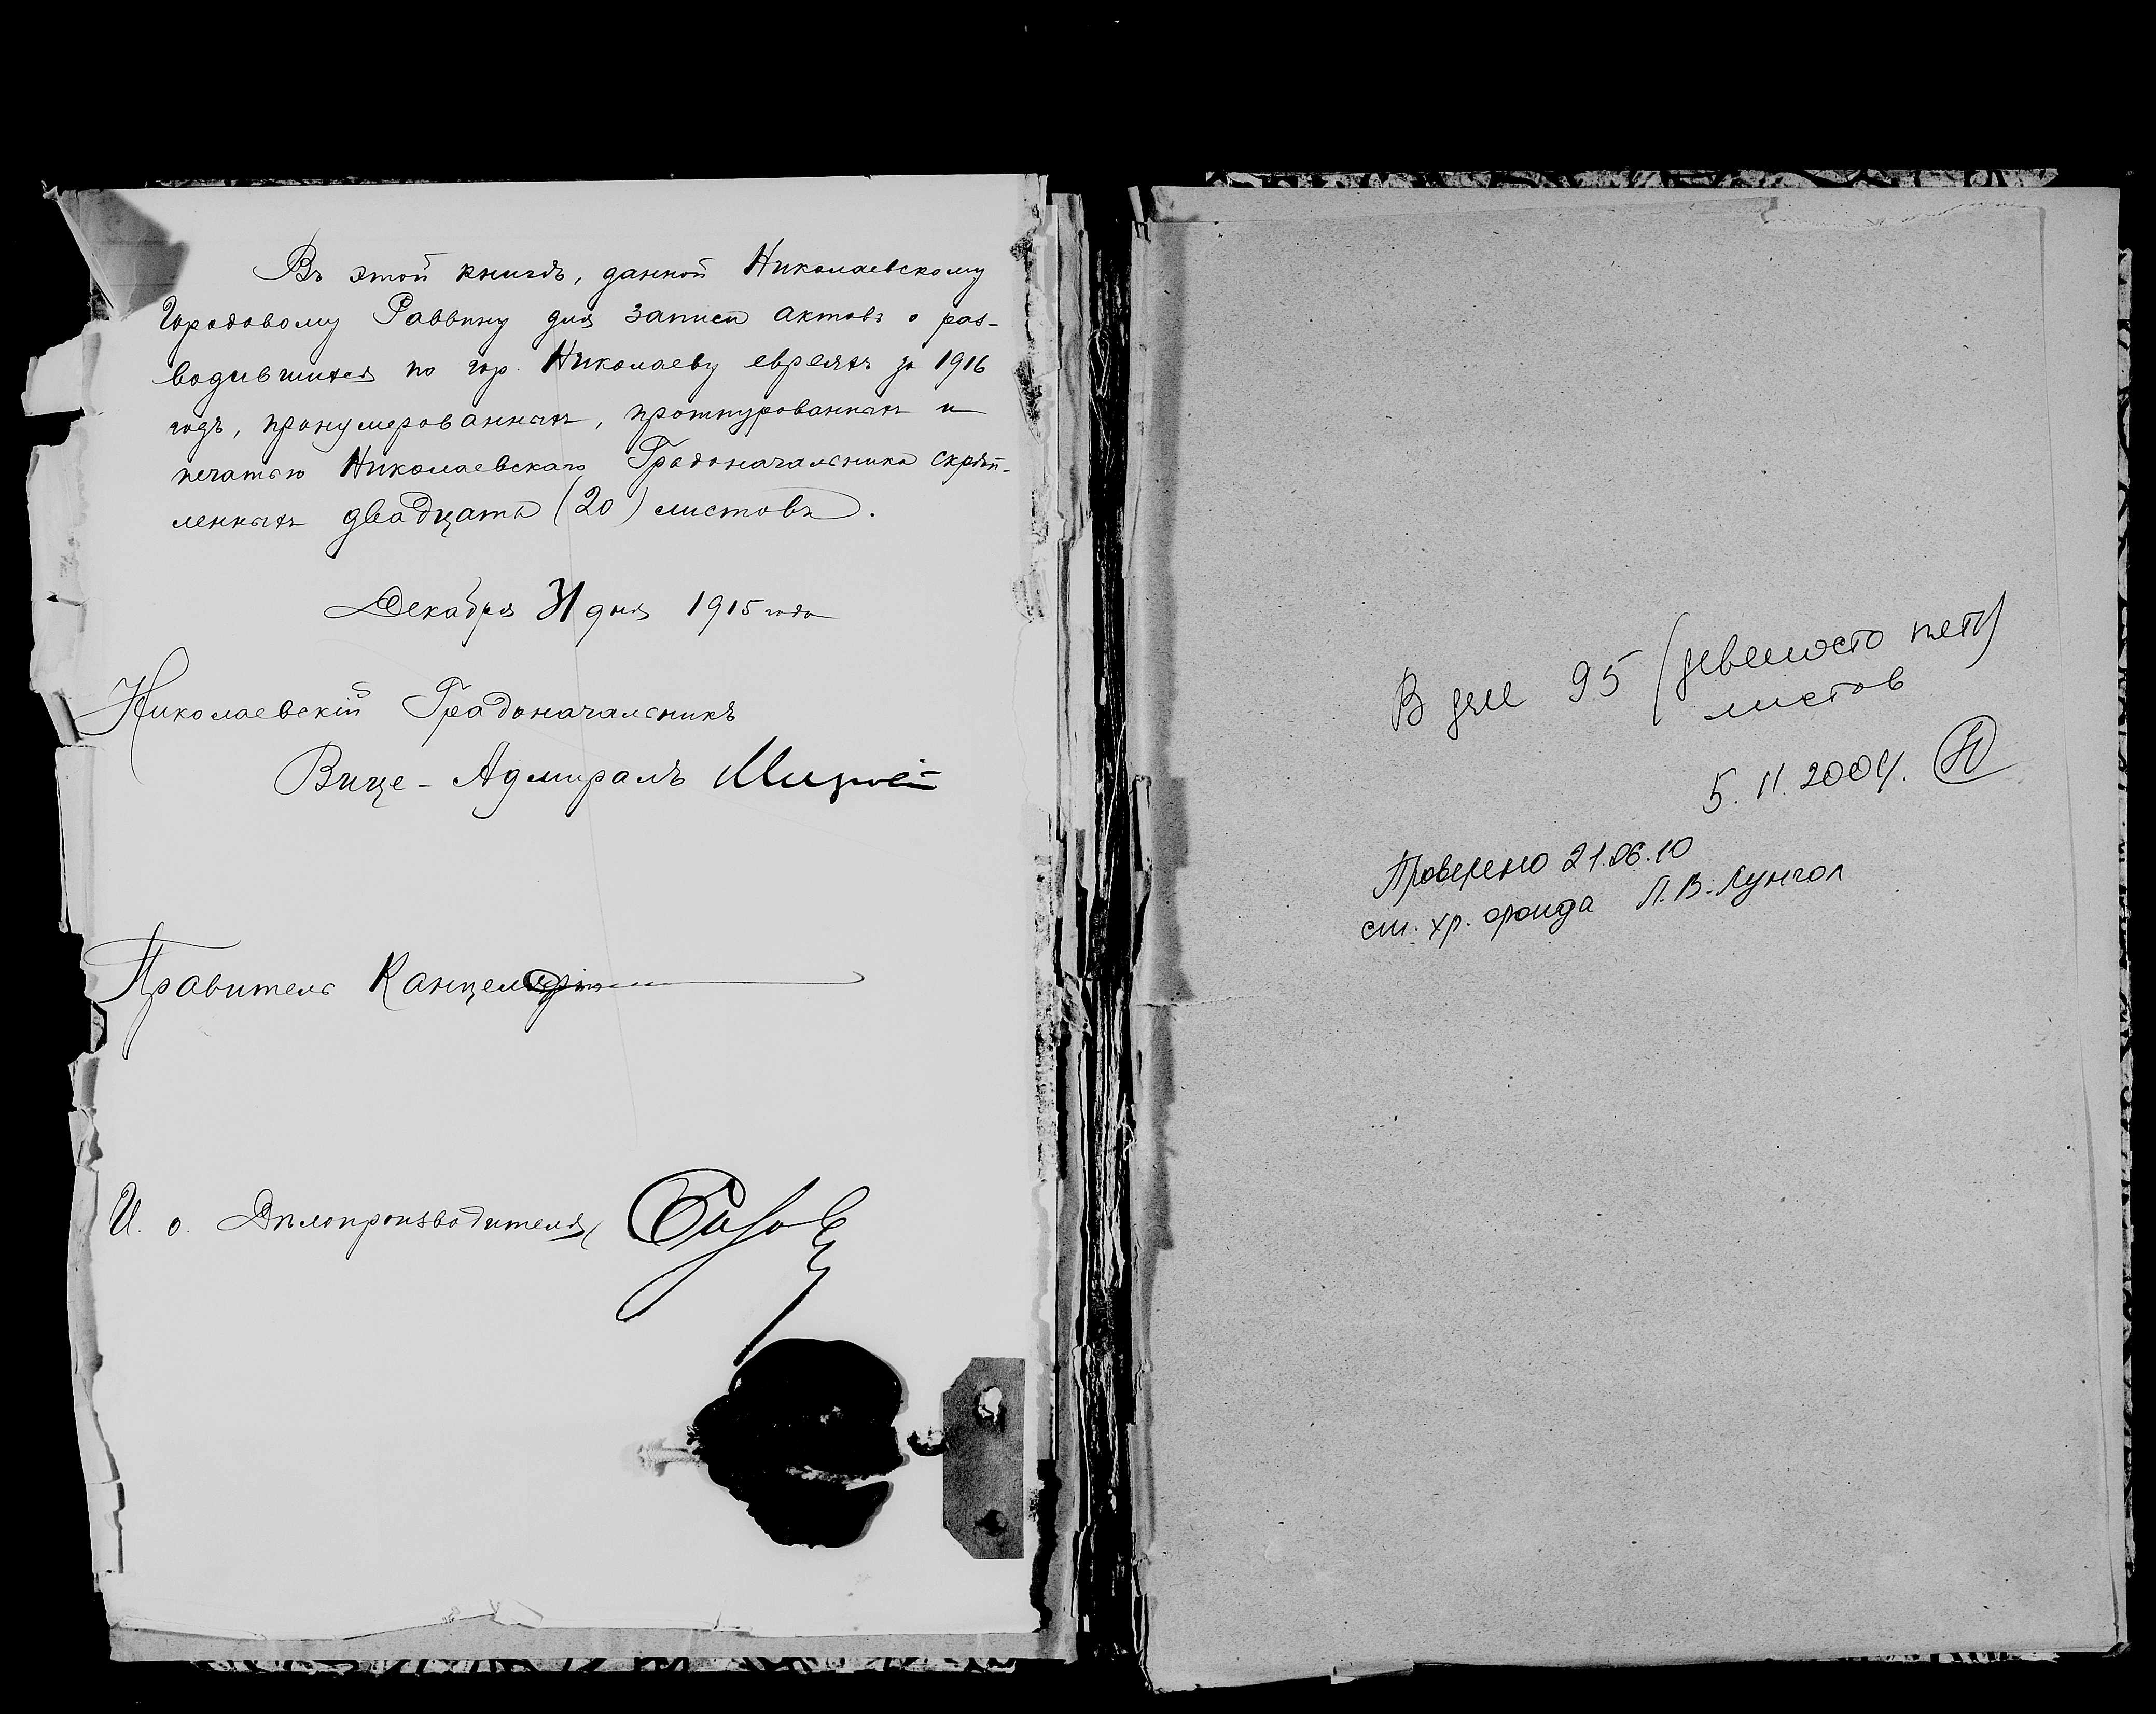 Въ этой книгѣ, данной Николаевскому
Городовому Раввину для записи актовъ о раз-
водившихся по гор. Николаеву евреяхъ за 1916
годъ, пронумерованныхъ, прошнурованныхъ и
печатью Николаевскаго Градоначальника скрѣп-
ленныхъ двадцать (20) листовъ.
Декабря 31 дня 1915 года
Николаевскій Градоначальникъ
Вице-Адмиралъ
Правитель Канцеляріи
И. о. Дѣлопроизводителя
В деле 95 (девяносто пять)
листов
5. 11. 2004.
Проверено 21.06.10
ст. хр. фонда Л. В.